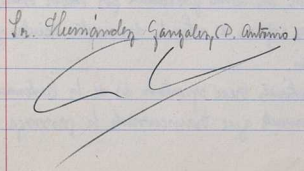 Sr. Hernández Gonzalez, (D. Antonio)